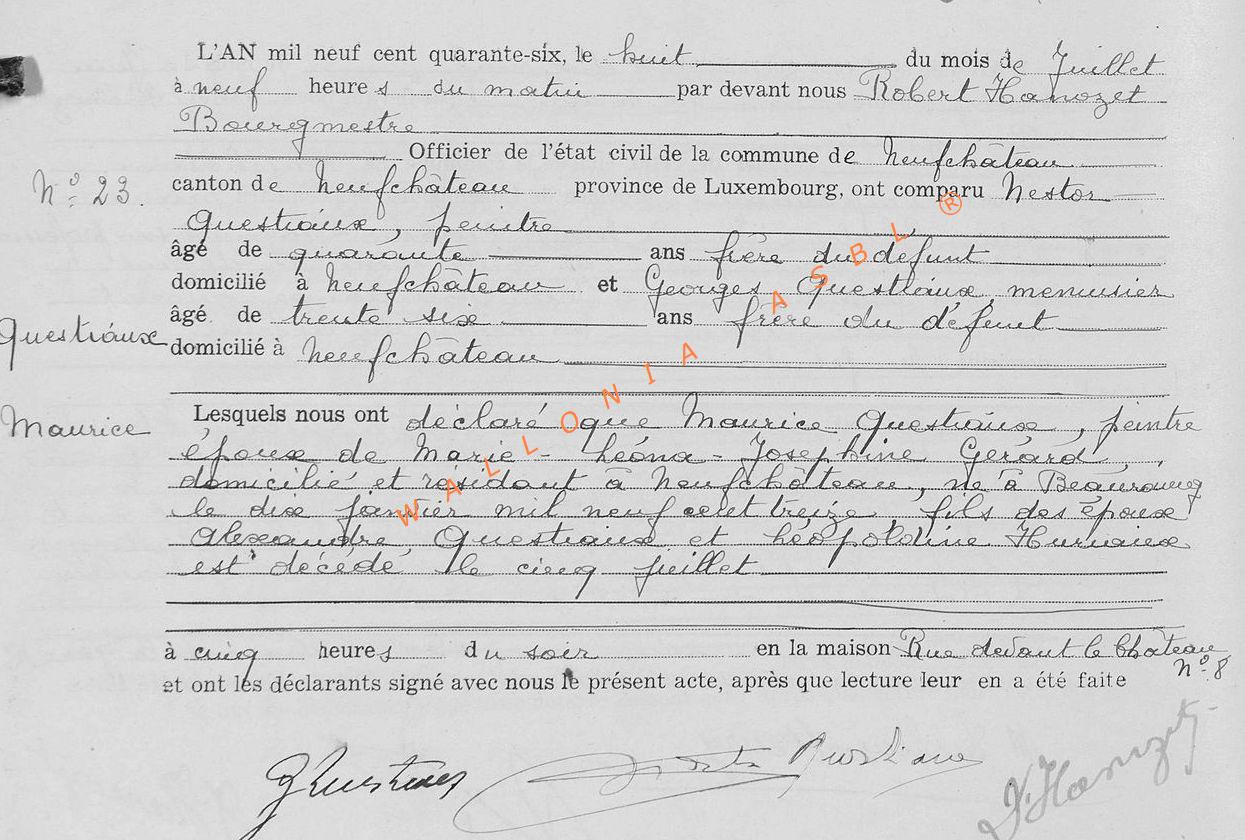 L'AN mil neuf cent quarante-six, le huit du mois de Juillet
à neuf heures du matin par devant nous Robert Hanozet
Bourgmestre
Officier de l'état civil de la commune de Neufchâteau
N° 23.
canton de Neufchâteau province de Luxembourg, ont comparu Nestor
Questiaux, peintre
âgé de quarante ans frère du défunt
domicilié à Neufchâteau et Georges Questiaux, menusier
âgé de trente six ans frère du défunt
Questiaux
domicilié à Neufchâteau
Maurice
Lesquels nous ont déclaré que Maurice Questiaux, peintre
époux de Marie-Léona-Josephine Gérard,
domicilié et résidant à Neufchâteau, né à Beauraing
le dix janvier mil neuf cent treize, fils des époux
Alexandre Questiaux et Léopoldine Huriaux
est décédé le cinq juillet
à cinq heures du soir en la maison Rue devant le Château
N° 8
et ont les déclarants signé avec nous le présent acte, après que lecture leur en a été faite
G Questiaux Nestor Questiaux
R. Hanozet
WALLONIA ASBL ®